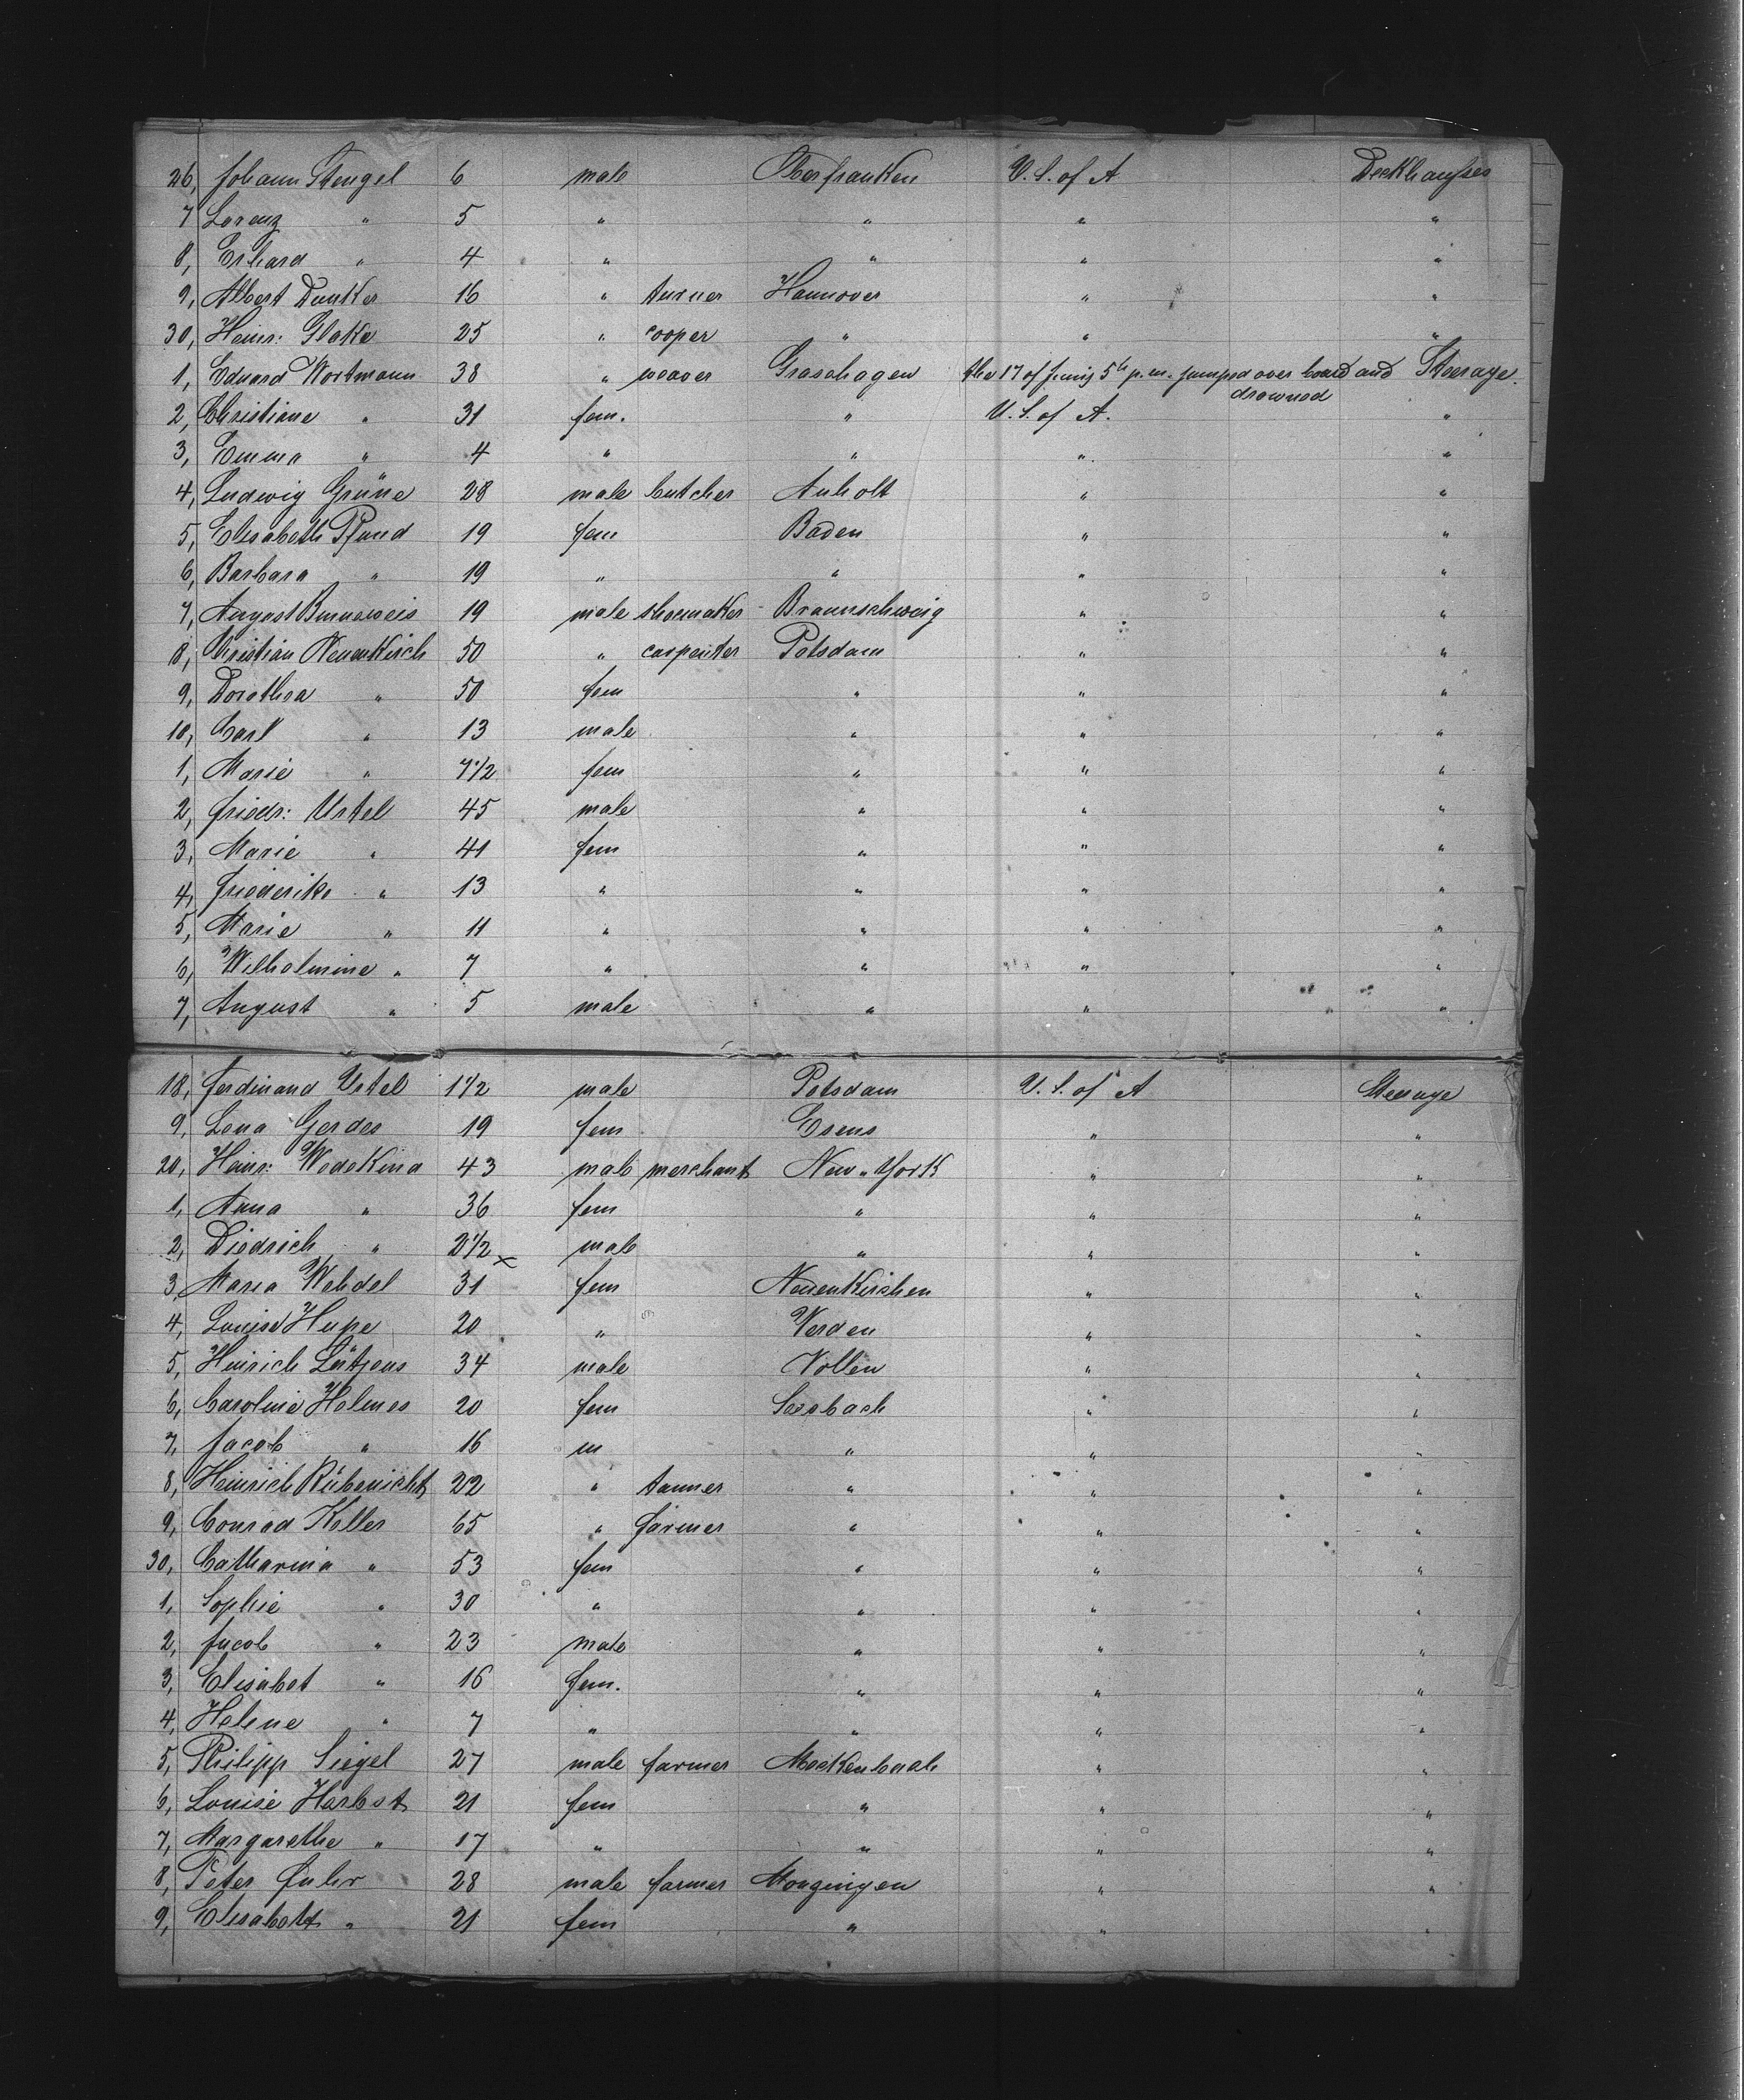 26, Johann Stengel 6 male Oberfranken U. S. of A Deckhauses
7 Lorenz " 5 " " " "
8, Erhard " 4 " " " "
9, Albert Dunker 16 " turner Hannover " "
30, Heinr: Glake 25 " cooper " " "
1, Eduard Wortmann 38 " weaver Graschagen the 17 of Junij 5 h p.m. jumped over board and Steerage.
drowned
2, Christiane " 31 fem. " U. S. of A. "
3, Emma " 4 " " " "
4, Ludwig Grüne 28 male butcher Anholt " "
5, Elisabeth Pfund 19 fem Baden " "
6, Barbara " 19 " " " "
7, August 19 male shoemaker Braunschweig " "
8, Christian Neuenkirch 50 " carpenter Potsdam " "
9, Dorothea " 50 fem " " "
10, Carl " 13 male " " "
1, Marie " 7 1/2 fem " " "
2, Friedr: Urtel 45 male " " "
3, Marie " 41 fem " " "
4, Friederike " 13 " " " "
5, Marie " 11 " " " "
6, Wilhelmine " 7 " " " "
7, August " 5 male " " "
18, Ferdinand Urtel 1 1/2 male Potsdam U. S. of A Steerage
9, Lena Gerdes 19 fem Esens " "
20, Heinr: Wedekind 43 male merchant New-York " "
1, Anna " 36 fem " " "
2, Diedrich " 2 1/2 x male " " "
3, Maria Wehdel 31 fem Neuenkirchen " "
4, Louise Hupe 20 " Verden " "
5, Hinrich Lütjens 34 male Nollen " "
6, Caroline Helmes 20 fem Seesbach " "
7, Jacob " 16 m " " "
8, Heinrich Rübenicht 22 " tanner " " "
9, Conrad Keller 65 " farmer " " "
30, Catharina " 53 fem " " "
1, Sophie " 30 " " " "
2, Jacob " 23 male " " "
3, Elisabet " 16 fem. " " "
4, Helene " 7 " " " "
5, Philipp Siegel 27 male farmer Meckenbach " "
6, Louise Harbst 21 fem " " "
7, Margarethe " 17 " " " "
8, Peter Fuhr 28 male farmer Monzingen " "
9, Elisabeth " 21 fem " " "